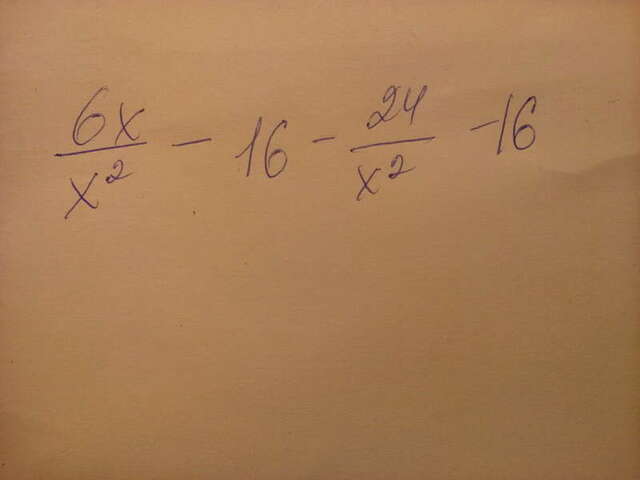 6x/x² - 16 - 24/x² - 16